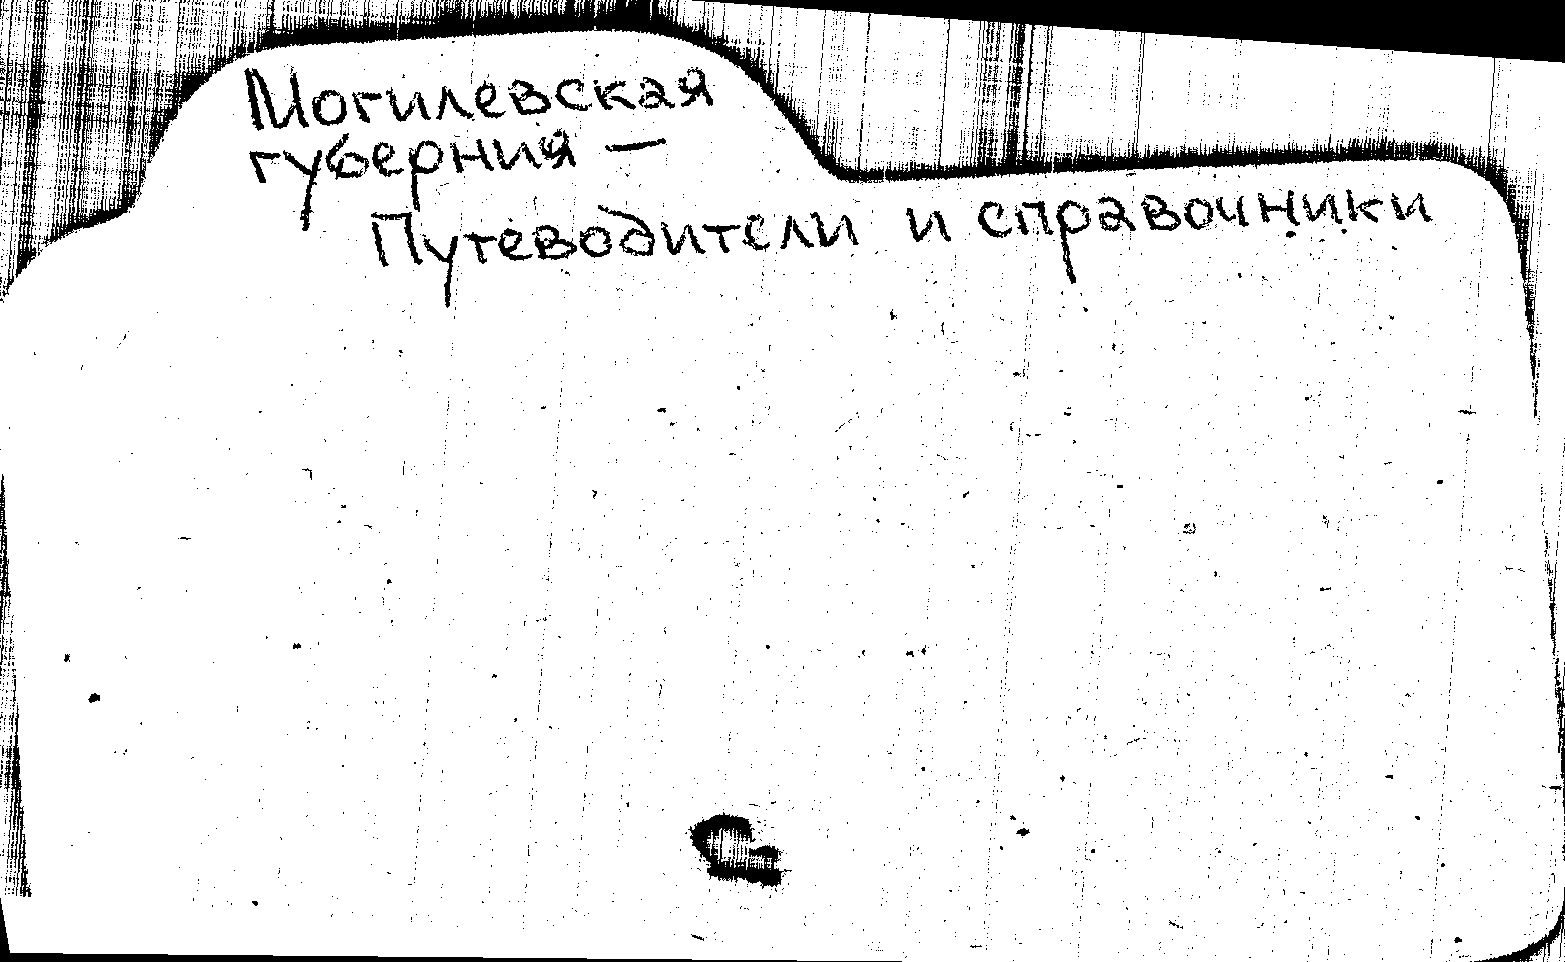 Могилевская
губерния —
Путеводители и справочники